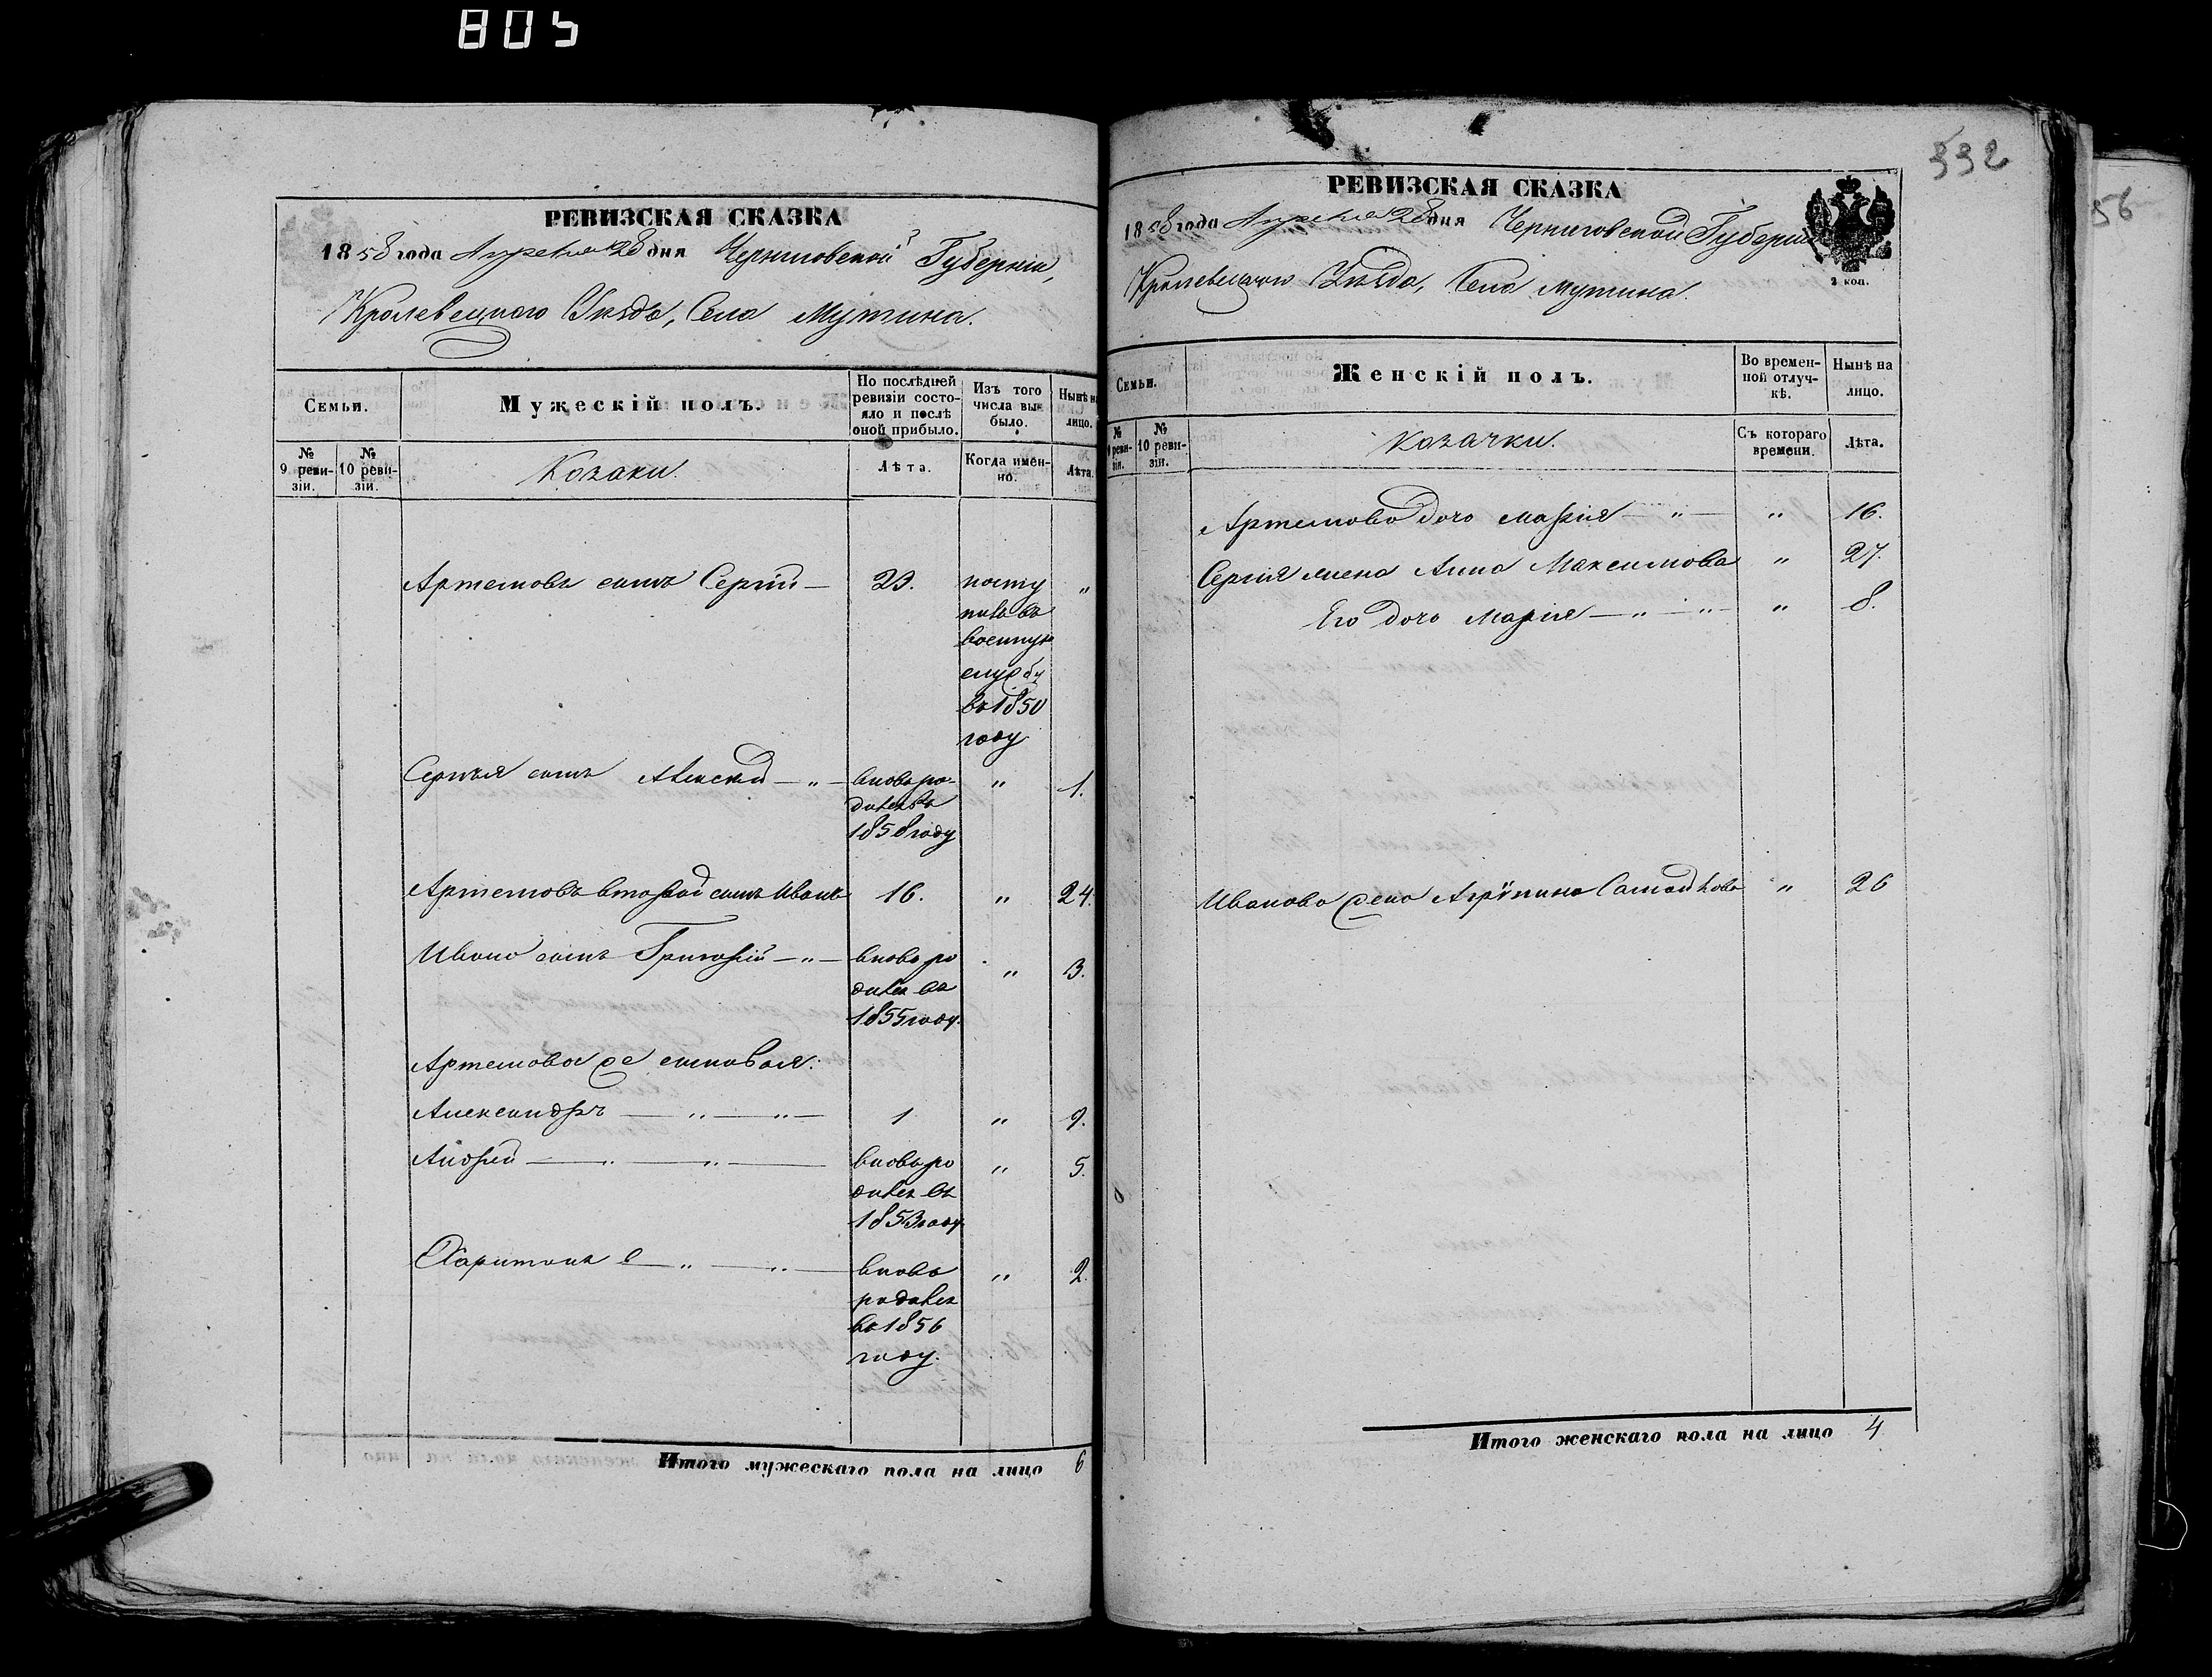 805
РЕВИЗСКАЯ СКАЗКА
1858 года Апреля 28 дня Черниговской Губерніи,
Кролевецкаго Уѣзда, Села Мутина.
Семьи.
Мужескій полъ.
По послѣдней ревизіи состояло и послѣ оной прибыло.
Изъ того числа выбыло.
Нынѣ на лицо.
№ 9 ревизіи.
№ 10 ревизіи.
Козаки.
Лѣта.
Когда именно.
Лѣта.
Артемовъ сынъ Сергій — 23. посту „
пилъ въ
военную
службу
въ 1850
году
Сергѣя сынъ Алексѣй — „ — вновь ро- „ 1.
дился въ
1858 году
Артемовъ второй сынъ Иванъ 16. „ 24.
Ивана сынъ Григорій — „ — вновь ро „ 3.
дился въ
1855 году.
Артемова же сыновья:
Александръ — „ — „ — 1 „ 9.
Андрей — „ — „ — вновь ро „ 5.
дился въ
1853 году
Харитонъ — „ — „ — вновь „ 2.
родился
въ 1856
году.
Итого мужескаго пола на лицо 6
332
56
РЕВИЗСКАЯ СКАЗКА
1858 года Апреля 28 дня Черниговской Губерніи
Кролевецкаго Уѣзда, Села Мутина.
2 коп.
Семьи.
Женскій полъ.
Во временной отлучкѣ.
Нынѣ на лицо.
№ 9 ревизіи.
№ 10 ревизіи.
Козачки.
Съ котораго времени.
Лѣта.
Артемова дочь Марія — „ — „ 16.
Сергія жена Анна Максимова „ 27.
Его дочь Марія — „ — „ — „ 8.
Иванова жена Агрипина „ 26
Итого женскаго пола на лицо 4